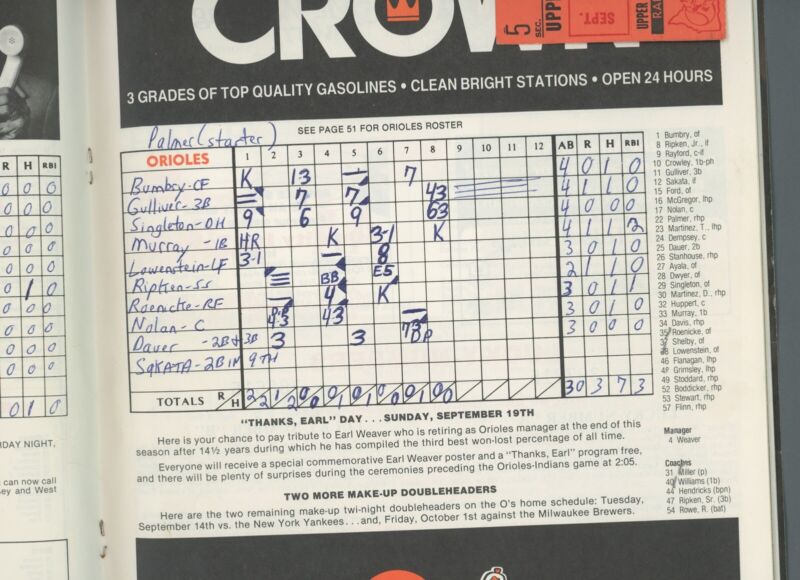 CROWN
5 SEC.
UPP
SEPT.
UPPER
RA
3 GRADES OF TOP QUALITY GASOLINES • CLEAN BRIGHT STATIONS • OPEN 24 HOURS
SEE PAGE 51 FOR ORIOLES ROSTER
Palmer (starter)
ORIOLES 1 2 3 4 5 6 7 8 9 10 11 12 AB R H RBI
Bumbry-CF K 13 7 4 0 1 0
Gulliver-3B 7 7 43 4 1 1 0
Singleton-DH 9 6 9 63 4 0 0 0
Murray-1B HR K 3-1 K 4 1 1
Lowenstein-LF 3-1 8 3 0 1 0
Ripken-SS BB E5 2 1 1 0
Roenicke-RF 4 K 3 0 1 1
Nolan-C 43 43 3 0 1 0
Dauer-2B+3B 3 3 DP 3 0 0 0
SaKATA-2B IN 9TH
TOTALS R H 30 3 7 3
R H RBI
0 0 0
0 0 0
0 0 0
0 0 0
0 0 0
0 0 0
0 1 0
0 0 0
0 0 0
0 1 0
RDAY NIGHT,
can now call
sey and West
1 Bumbry, of
8 Ripken, Jr., if
9 Rayford, c-if
10 Crowley, 1b-ph
11 Gulliver, 3b
12 Sakata, if
15 Ford, of
16 McGregor, lhp
17 Nolan, c
22 Palmer, rhp
23 Martinez, T., lhp
24 Dempsey, c
25 Dauer, 2b
26 Stanhouse, rhp
27 Ayala, of
28 Dwyer, of
29 Singleton, of
30 Martinez, D., rhp
32 Huppert, c
33 Murray, 1b
34 Davis, rhp
35 Roenicke, of
37 Shelby, of
38 Lowenstein, of
46 Flanagan, lhp
48 Grimsley, lhp
49 Stoddard, rhp
52 Boddicker, rhp
53 Stewart, rhp
57 Flinn, rhp
Manager
4 Weaver
Coaches
31 Miller (p)
40 Williams (1b)
44 Hendricks (bpn)
47 Ripken, Sr. (3b)
54 Rowe, R. (bat)
"THANKS, EARL" DAY . . . SUNDAY, SEPTEMBER 19TH
Here is your chance to pay tribute to Earl Weaver who is retiring as Orioles manager at the end of this
season after 14½ years during which he has compiled the third best won-lost percentage of all time.
Everyone will receive a special commemorative Earl Weaver poster and a "Thanks, Earl" program free,
and there will be plenty of surprises during the ceremonies preceding the Orioles-Indians game at 2:05.
TWO MORE MAKE-UP DOUBLEHEADERS
Here are the two remaining make-up twi-night doubleheaders on the O's home schedule: Tuesday,
September 14th vs. the New York Yankees . . . and, Friday, October 1st against the Milwaukee Brewers.